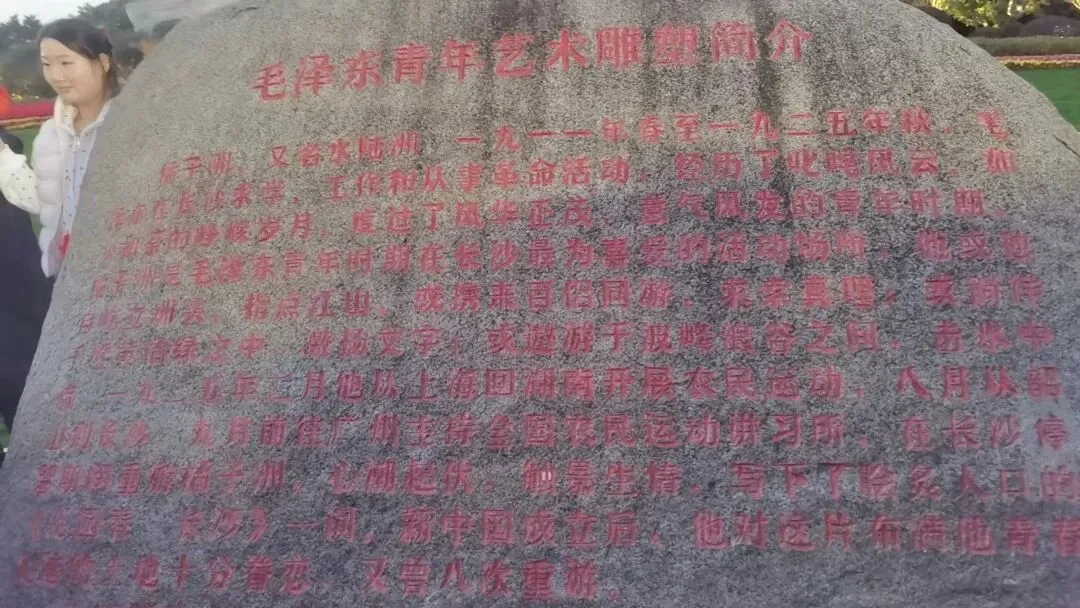 毛泽东青年艺术雕塑简介
橘子洲，又名水陆洲，一九一一年春至一九二五年秋，毛
泽东在长沙求学、工作和从事革命活动，经历了叱咤风云、如
火如荼的峥嵘岁月，度过了风华正茂、意气风发的青年时期。
橘子洲是毛泽东青年时期在长沙最为喜爱的活动场所，他或独
立洲头，指点江山，或携来百侣同游，求索真理；或
激扬文字；或遨游于波峰浪谷之间，击水中
流。一九二五年二月他从上海回湖南开展农民运动，八月从韶
山到长沙，九月前往广州主持全国农民运动讲习所，在长沙停
留期间重游橘子洲，心潮起伏，触景生情，写下了脍炙人口的
《沁园春 长沙》一词，新中国成立后，他对这片布满他青春
土地十分眷恋，又曾八次重游。